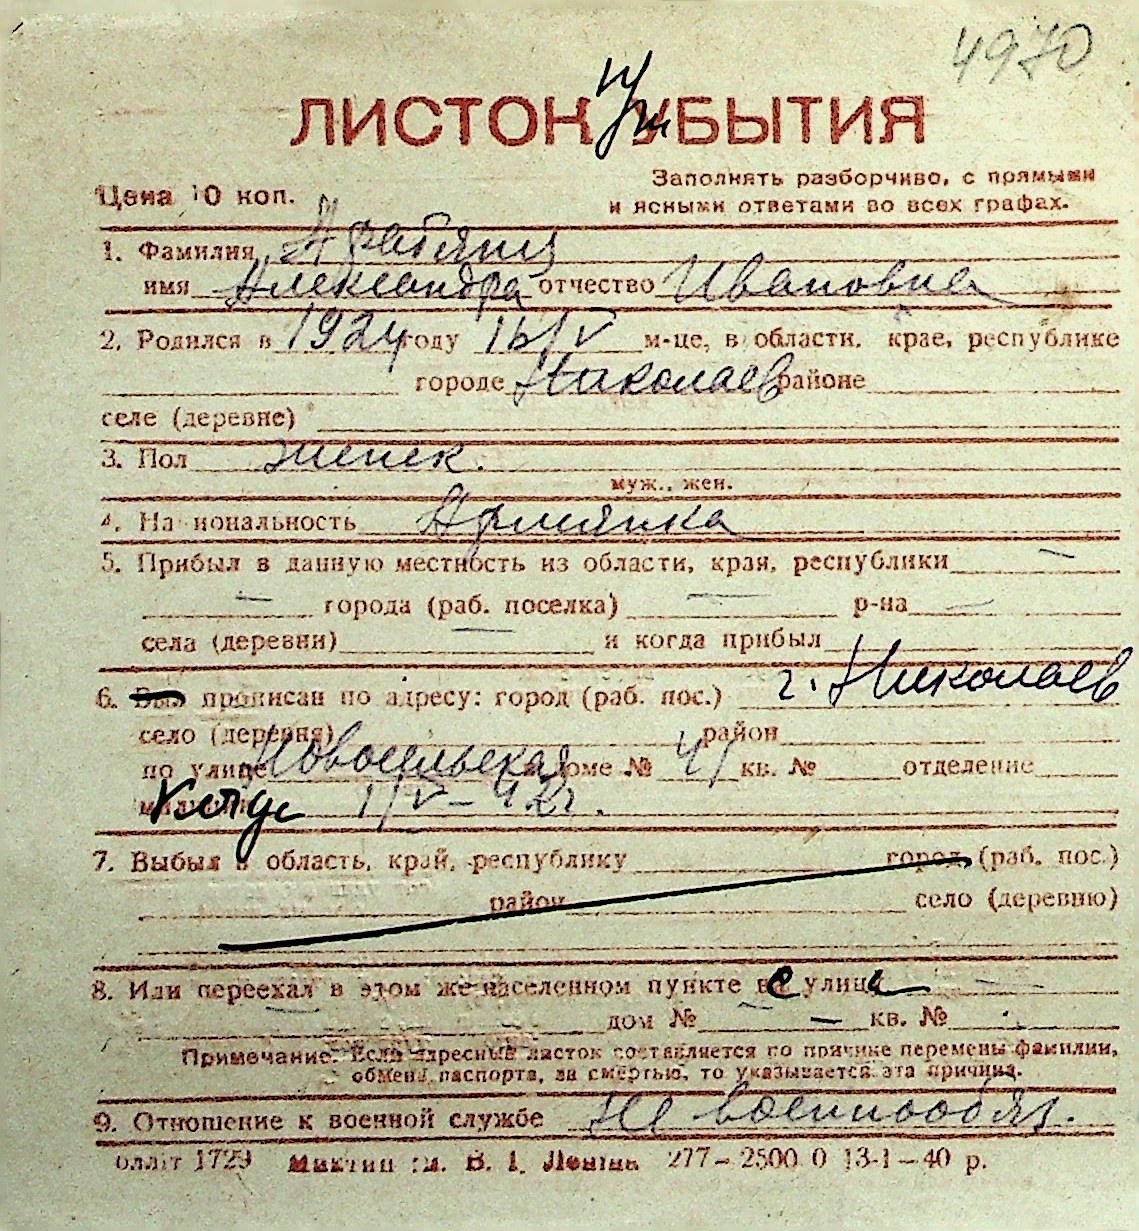 4970
ЛИСТОК УБЫТИЯ
Цена 10 коп.
Заполнять разборчиво, с прямыми
и ясными ответами во всех графах.
1. Фамилия Арабянц
имя Александра отчество Ивановна
2. Родился в 1924 году 16/V м-це, в области, крае, республике
городе Николаев районе
селе (деревне)
3. Пол женск.
муж., жен.
4. Национальность Армянка
5. Прибыл в данную местность из области, края, республики —
— города (раб. поселка) — р-на —
села (деревни) — и когда прибыл
6. Был прописан по адресу: город (раб. пос.) г. Николаев
село (деревня) район
по улице Новосельская доме № 41 кв. № отделение
милиции 1/V-42г.
7. Выбыл в область, край, республику город (раб. пос.)
район село (деревню)
8. Или переехал в этом же населенном пункте с улица —
— дом № — кв. №
Примечание: Если адресный листок составляется по причине перемены фамилии,
обмена паспорта, за смертью, то указывается эта причина.
9. Отношение к военной службе Не военнообяз.
В. І. Леніна 277-2500.0 13-1-40 р.